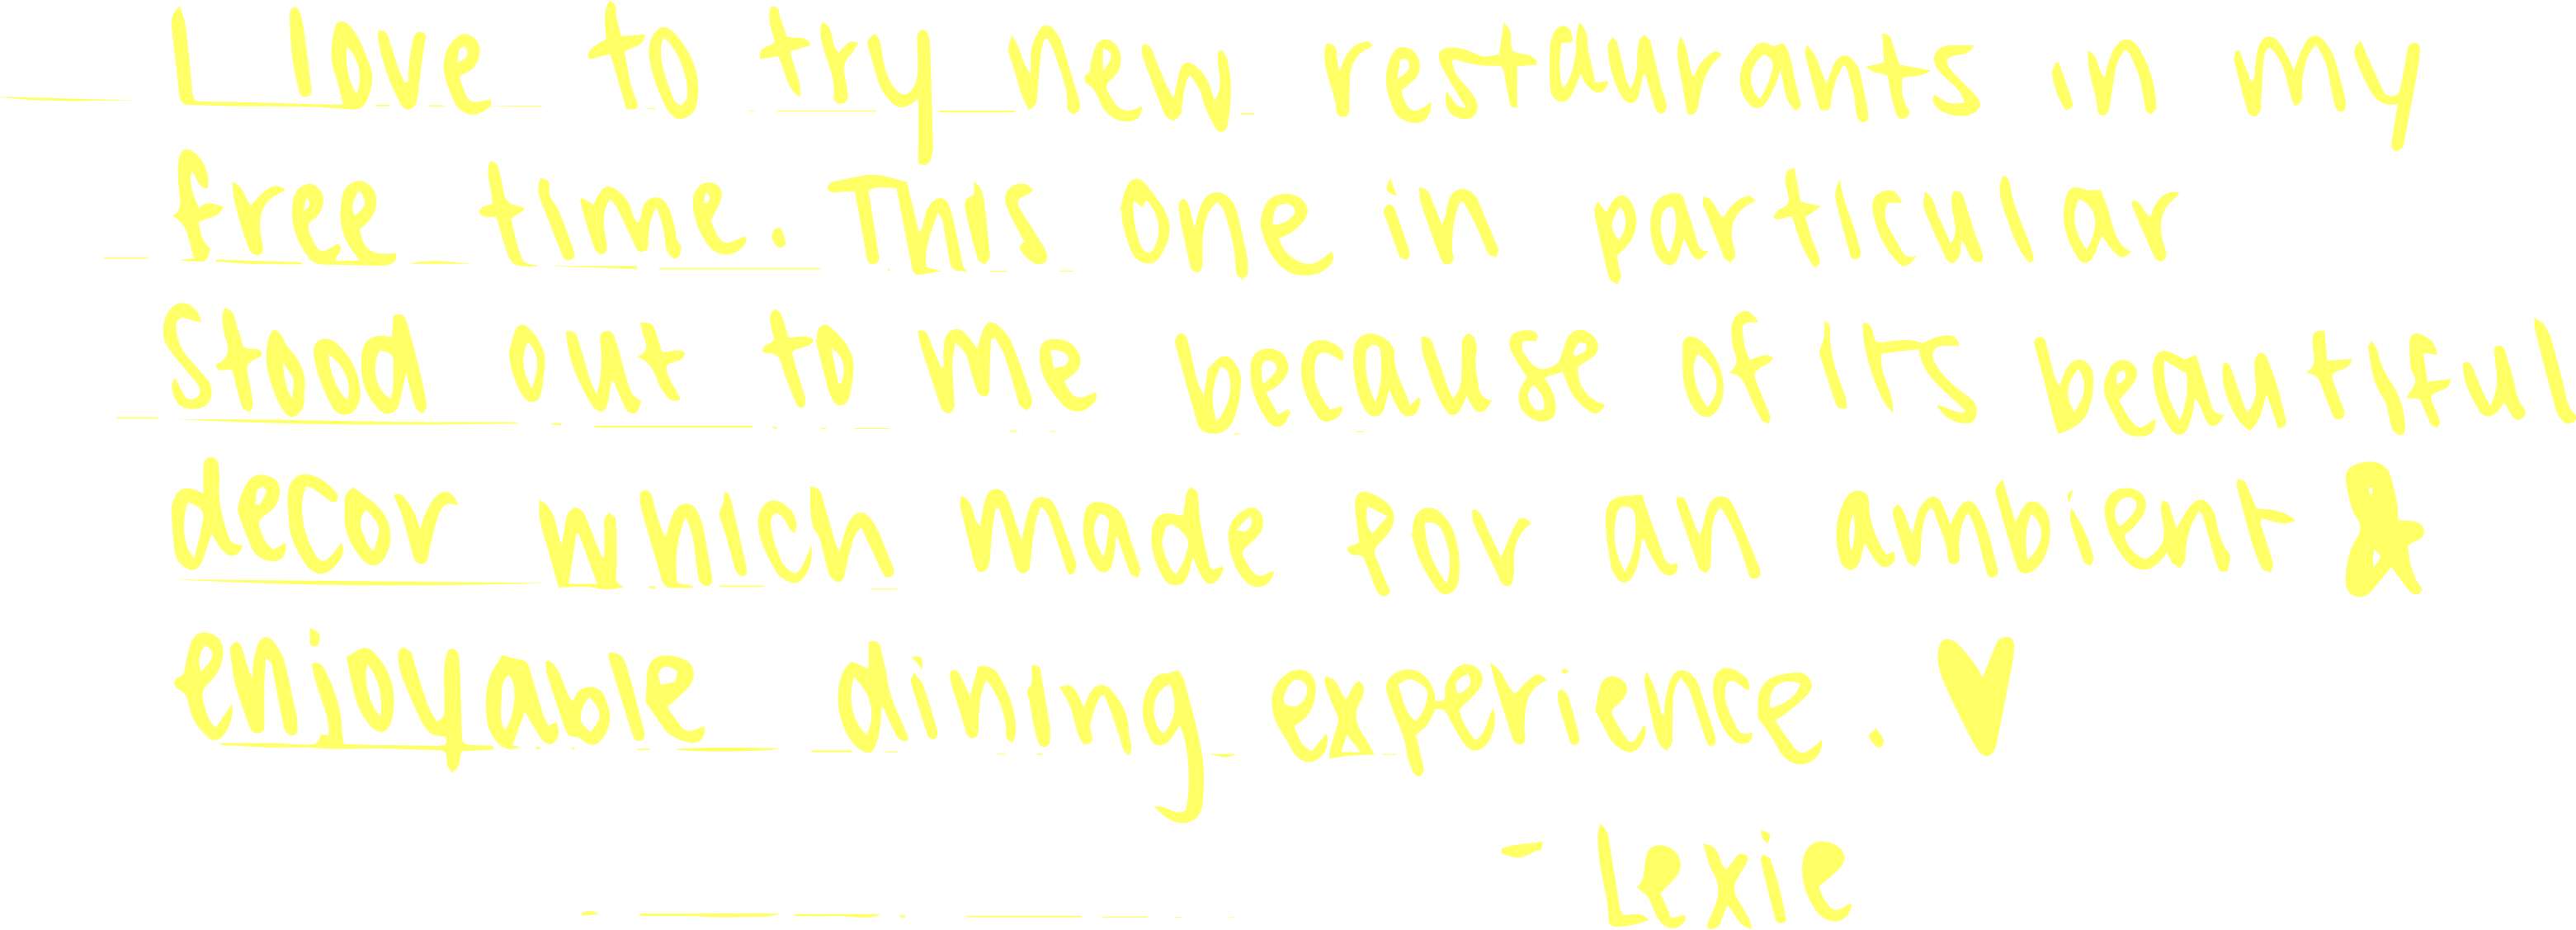 I love to try new restaurants in my
free time. This one in particular
stood out to me because of its beautiful
decor which made for an ambient &
enjoyable dining experience. ♥
- Lexie